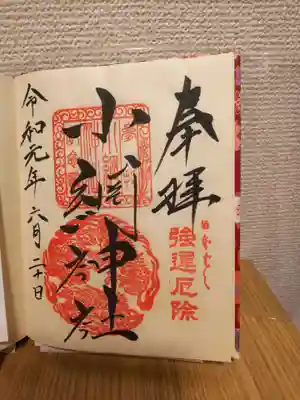 奉拝
強運厄除
小網神社
令和元年 六月二十日